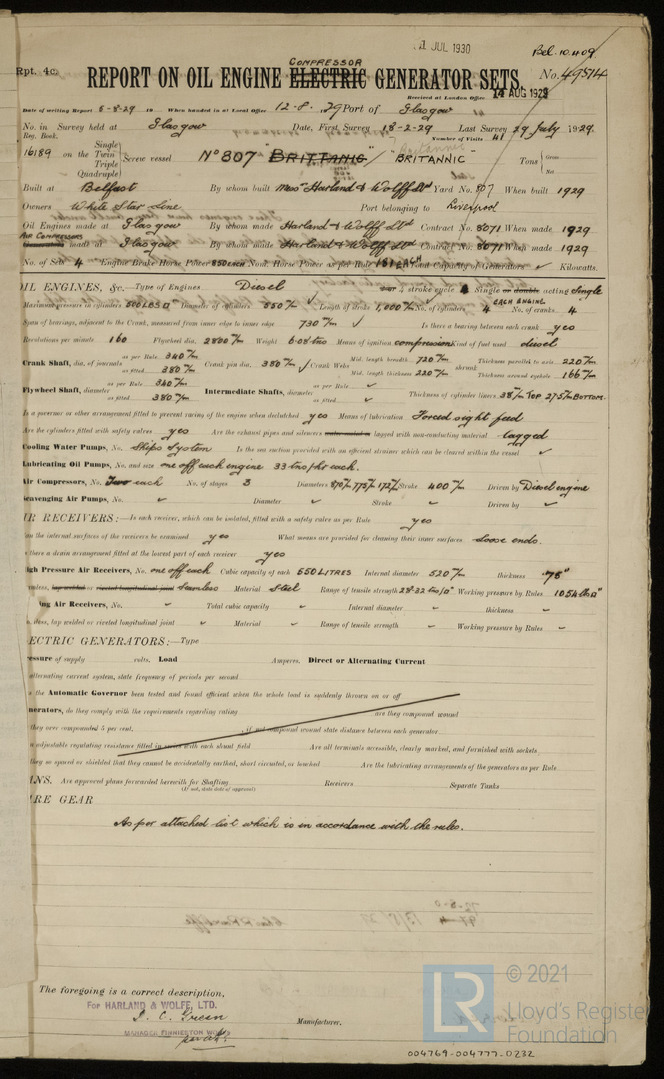 1 JUL 1930
Bel. 10.409
Rpt. 4c.
COMPRESSOR
REPORT ON OIL ENGINE ELECTRIC GENERATOR SETS.
No. 49514
Received at London Office 14 AUG 1929
Date of writing Report 6-8-29 19 When handed in at Local Office 12-8. 29 Port of Glasgow
No. in Survey held at Glasgow Date, First Survey 18-2-29 Last Survey 29 July 1929.
Reg. Book. Number of Visits 41
16189 on the Single Twin Triple Quadruple Screw vessel No 807 "BRITTANIC" "BRITANNIC" Tons Gross Net
Built at Belfast By whom built Messrs Harland & Wolff Ltd Yard No. 807 When built 1929
Owners White Star Line Port belonging to Liverpool
Oil Engines made at Glasgow By whom made Harland & Wolff Ltd Contract No. 8071 When made 1929
Air Compressors Generators made at Glasgow By whom made Harland & Wolff Ltd Contract No. 8071 When made 1929
No. of Sets 4 Engine Brake Horse Power 850 each Nom. Horse Power as per Rule 181 EACH Total Capacity of Generators ✓ Kilowatts.
OIL ENGINES, &c.—Type of Engines Diesel 4 stroke cycle 4 Single or double acting Single
Maximum pressure in cylinders 500 LBS □" Diameter of cylinders 550 m/m Length of stroke 1,000 m/m No. of cylinders 4 EACH ENGINE No. of cranks 4
Span of bearings, adjacent to the Crank, measured from inner edge to inner edge 730 m/m ✓ Is there a bearing between each crank yes
Revolutions per minute 160 Flywheel dia. 2800 m/m Weight 6.08 tns Means of ignition compression Kind of fuel used diesel
Crank Shaft, dia. of journals as per Rule 340 m/m as fitted 380 m/m Crank pin dia. 380 m/m ✓ Crank Webs Mid. length breadth 720 m/m Mid. length thickness 220 m/m shrunk Thickness parallel to axis 220 m/m Thickness around eyehole 166 m/m
Flywheel Shaft, diameter as per Rule 340 m/m as fitted 380 m/m Intermediate Shafts, diameter as per Rule ✓ as fitted Thickness of cylinder liners 38 m/m TOP 27.5 m/m BOTTOM.
Is a governor or other arrangement fitted to prevent racing of the engine when declutched yes Means of lubrication Forced sight feed
Are the cylinders fitted with safety valves yes Are the exhaust pipes and silencers water cooled or lagged with non-conducting material lagged
Cooling Water Pumps, No. Ships System Is the sea suction provided with an efficient strainer which can be cleared within the vessel ✓
Lubricating Oil Pumps, No. and size one off each engine 33 tns/hr each.
Air Compressors, No. Two each No. of stages 3 Diameters 870 m/m 775 m/m 172 m/m Stroke 400 m/m Driven by Diesel engine
Scavenging Air Pumps, No. ✓ Diameter ✓ Stroke ✓ Driven by ✓
IR RECEIVERS:—Is each receiver, which can be isolated, fitted with a safety valve as per Rule yes
an the internal surfaces of the receivers be examined yes What means are provided for cleaning their inner surfaces loose ends.
s there a drain arrangement fitted at the lowest part of each receiver yes
High Pressure Air Receivers, No. one off each Cubic capacity of each 550 LITRES Internal diameter 520 m/m thickness .78"
mless, lap welded or riveted longitudinal joint Seamless Material Steel Range of tensile strength 28-32 tns/□" Working pressure by Rules 1054 lbs □"
ting Air Receivers, No. ✓ Total cubic capacity ✓ Internal diameter ✓ thickness ✓
less, lap welded or riveted longitudinal joint ✓ Material ✓ Range of tensile strength ✓ Working pressure by Rules ✓
ECTRIC GENERATORS:—Type
essure of supply volts. Load Amperes. Direct or Alternating Current
alternating current system, state frequency of periods per second
s the Automatic Governor been tested and found efficient when the whole load is suddenly thrown on or off
nerators, do they comply with the requirements regarding rating are they compound wound
they over compounded 5 per cent. , if not compound wound state distance between each generator
n adjustable regulating resistance fitted in series with each shunt field Are all terminals accessible, clearly marked, and furnished with sockets
they so spaced or shielded that they cannot be accidentally earthed, short circuited, or touched Are the lubricating arrangements of the generators as per Rule
ANS. Are approved plans forwarded herewith for Shafting Receivers Separate Tanks
(If not, state date of approval)
ARE GEAR
As per attached list which is in accordance with the rules.
The foregoing is a correct description,
For HARLAND & WOLFF, LTD.
D. C. Green Manufacturer.
MANAGER FINNIESTON WORKS
LR
© 2021
Lloyd's Registe
Foundation
004769-004777-0232